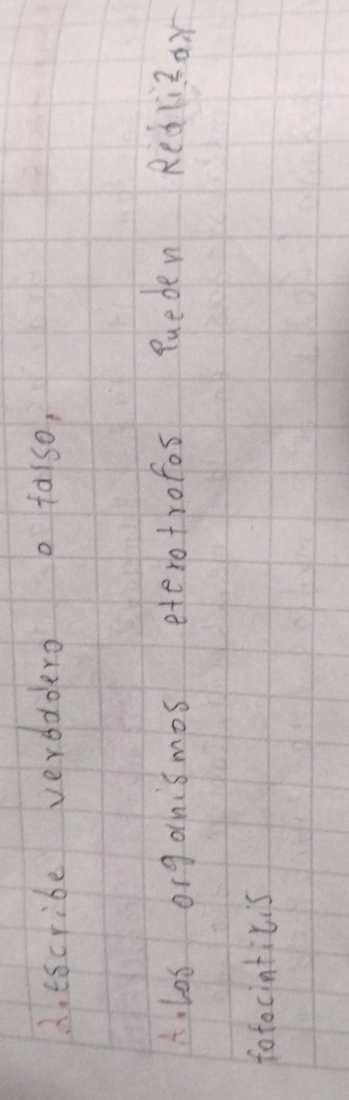 2. Escribe verdadero o falso,
A. Los organismos eterotrofos Pueden Realizar
fotocintitis